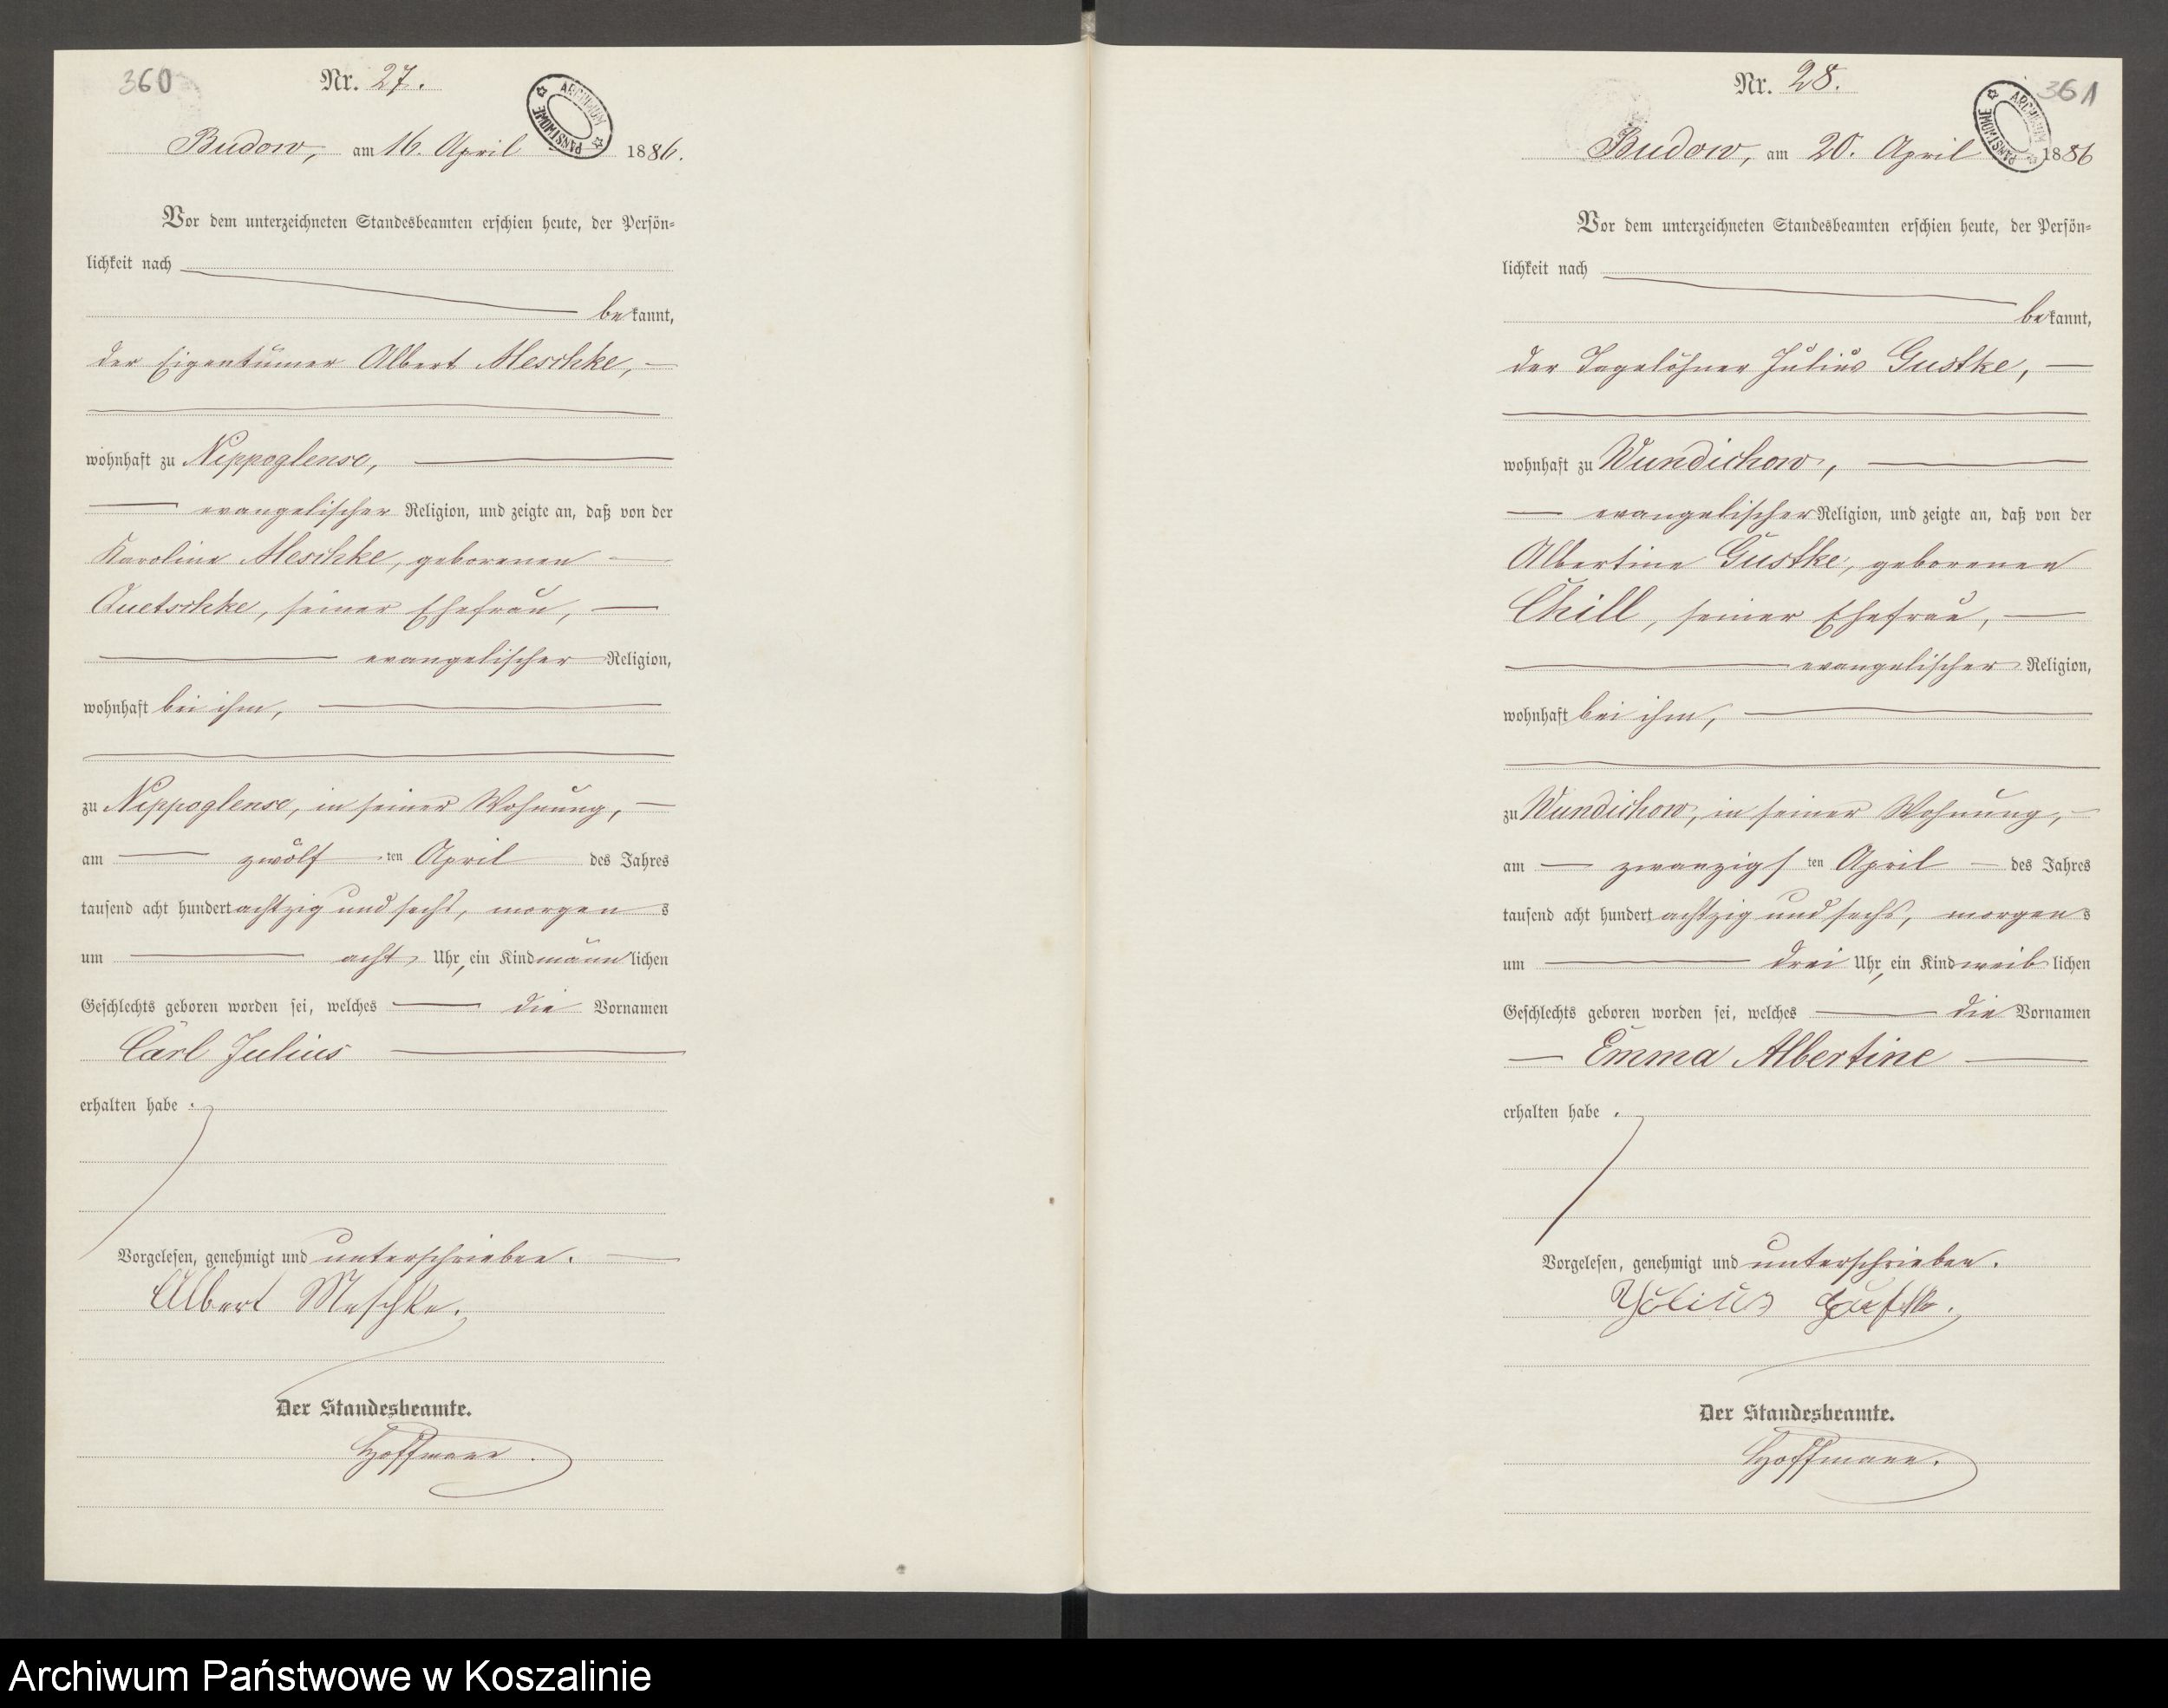 360
Nr. 27.
ARCHIWUM PAŃSTWOWE
Budow, am 16. April 1886.
Vor dem unterzeichneten Standesbeamten erschien heute, der Persön-
lichkeit nach
bekannt,
der Eigentümer Albert Meschke,
wohnhaft zu Nippoglense,
evangelischer Religion, und zeigte an, daß von der
Karoline Meschke, geborenen
Quetschke, seiner Ehefrau,
evangelischer Religion,
wohnhaft bei ihm,
zu Nippoglense, in seiner Wohnung,
am zwölf ten April des Jahres
tausend acht hundert achtzig und sechs, morgens
um acht Uhr, ein Kind männlichen
Geschlechts geboren worden sei, welches die Vornamen
Carl Julius
erhalten habe.
Vorgelesen, genehmigt und unterschrieben.
Albert Meschke.
Der Standesbeamte.
Hoffmann.
361
Nr. 28.
ARCHIWUM PAŃSTWOWE
Budow, am 20. April 1886
Vor dem unterzeichneten Standesbeamten erschien heute, der Persön-
lichkeit nach
bekannt,
der Tagelöhner Julius Gustke,
wohnhaft zu Wundichow,
evangelischer Religion, und zeigte an, daß von der
Albertine Gustke, geborenen
Chill, seiner Ehefrau,
evangelischer Religion,
wohnhaft bei ihm,
zu Wundichow, in seiner Wohnung,
am zwanzigsten April des Jahres
tausend acht hundert achtzig und sechs, morgens
um drei Uhr, ein Kind weiblichen
Geschlechts geboren worden sei, welches die Vornamen
Emma Albertine
erhalten habe.
Vorgelesen, genehmigt und unterschrieben.
Julius Gustke.
Der Standesbeamte.
Hoffmann.
Archiwum Państwowe w Koszalinie